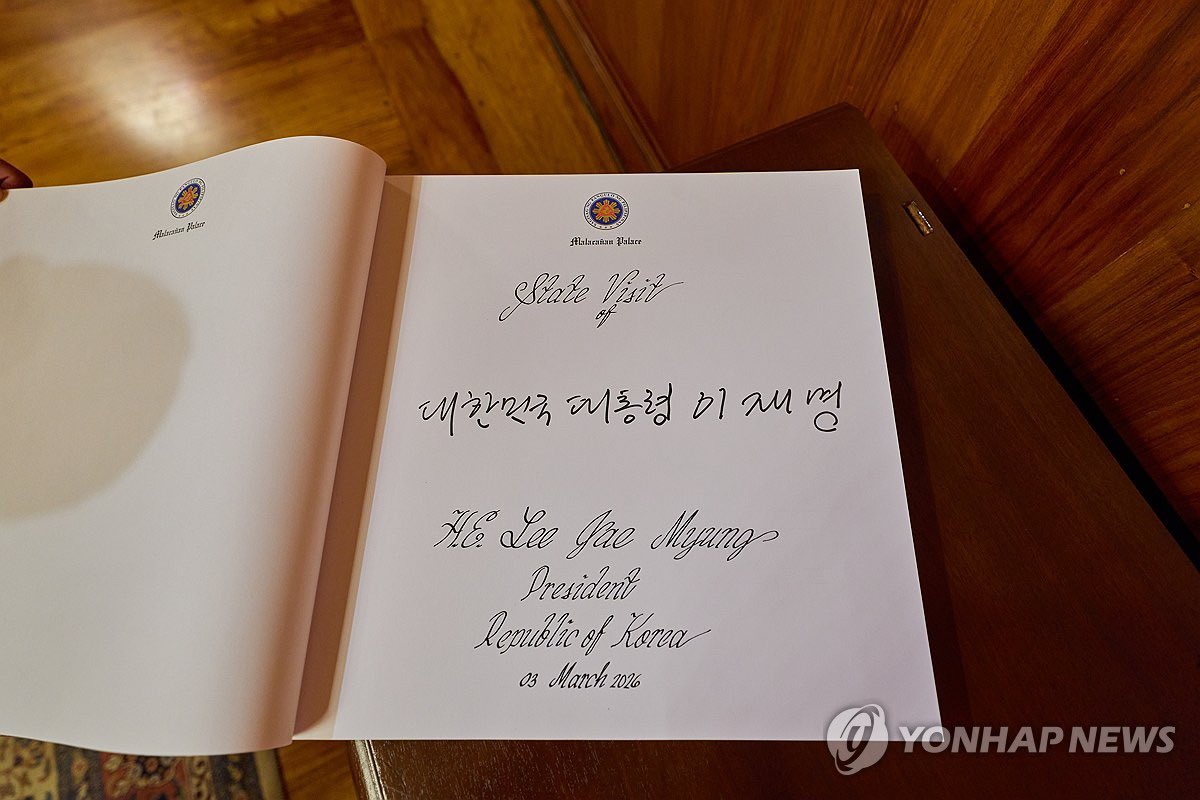 Malacañan Palace
Malacañan Palace
State Visit
of
대한민국 대통령 이재명
H.E. Lee Jae Myung
President
Republic of Korea
03 March 2026
YONHAP NEWS